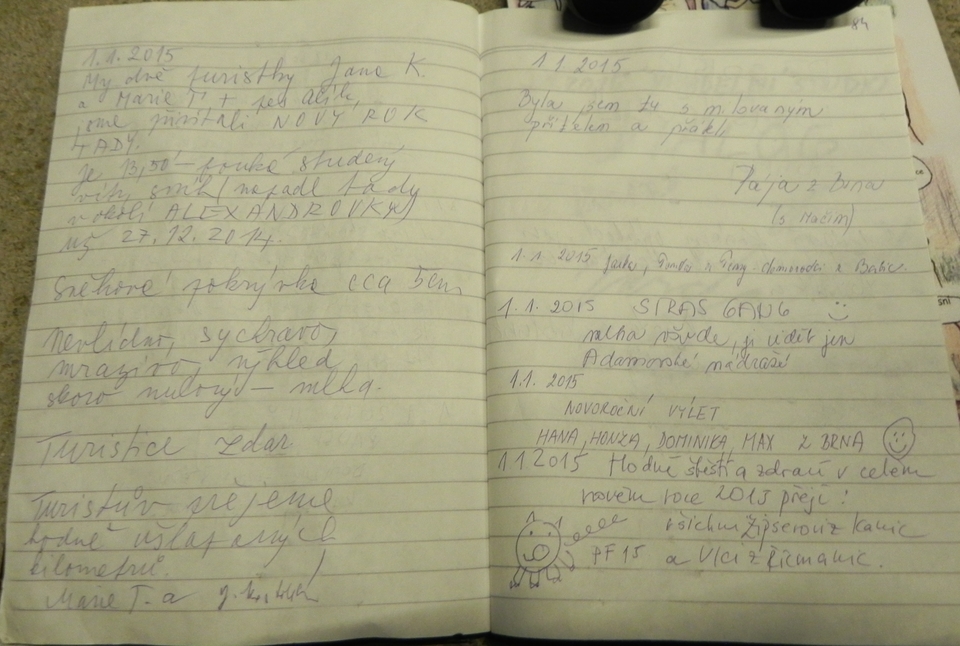 1.1.2015
My dvě turistky Jana K.
a Marie T. + pes
jsme přivítali NOVÝ ROK
TADY.
Je 13,50 – fouká studený
vítr, sníh (napadl tady
v okolí ALEXANDROVKY)
už 27.12.2014.
Sněhová pokrývka cca 5cm
Nevlídno, sychravo,
mrazivo, výhled
skoro nulový – mlha.
Turistice zdar
Turistům přejeme
hodně ušlapaných
kilometrů.
Marie T. a J.
84
1 1 2015
Byla jsem tu s milovaným
přítelem a přáteli
Pája z Brna
(s Mačím)
1.1.2015 z
1.1.2015 STRAS GANG :)
mlha všude, ji vidět jen
Adamovské nádraží
1.1. 2015
NOVOROČNÍ VÝLET
HANA, HONZA, DOMINIKA, MAX Z BRNA
1.1.2015 Hodně štěstí a zdraví v celém
novém roce 2015 přejí:
všichni Žipserovi z Kanic
PF 15 a Vlci z Řícmanic.